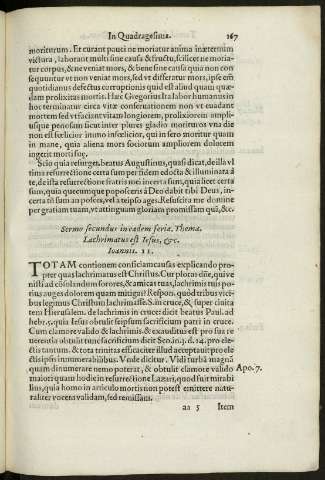 In Quadragesima. 167
moriturum. Et curant pauci ne moriatur anima inæternum
victura, laborant multi sine causa & fructu, scilicet ne moria-
tur corpus, & ne veniat mors, & bene sine causa quia non con
sequuntur vt non veniat mors, sed vt differatur mors, ipse em̃
quotidianus defectus corruptionis quid est aliud quam quæ-
dam prolixitas mortis. Hæc Gregorius. Ita labor humanus in
hoc terminatur circa vitæ conseruationem non vt euadant
mortem sed vt faciant vitam longiorem, prolixiorem ampli-
usque penosam sicut inter plures gladio morituros vna die
non est fœlicior immo infœlicior, qui in sero moritur quam
in mane, quia aliena mors sociorum ampliorem dolorem
ingerit morti suę.
Scio quia resurget. beatus Augustinus, quasi dicat, de illa vl
tima resurrectione certa sum per fidem edocta & illuminata á
te, de ista resurrectione fratris mei incerta sum, quia licet certa
sum, quia quecumque poposceris à Deo dabit tibi Deus, in-
certa tñ sum an posces, vel a te ipso ages. Resuscita me domine
per gratiam tuam, vt attinguam gloriam promissam quã, &c.
Sermo secundus in eadem feria. Thema.
Lachrimatus est Iesus, &c.
Ioannis. 11.
TOTAM contionem consficiam causas explicando pro-
pter quas lachrimatus est Christus. Cur ploras dñe, qui ve
nisti ad cosolandum sorores, & amicas tuas, lachrimis tuis po-
tius auges dolorem quam mitigas? Respon. quòd tribus vici-
bus legimus Christum lachrimasse. S. in cruce, & super ciuita
tem Hierusalem. de lachrimis in cruce: dicit beatus Paul. ad
hebr. 5. quia Iesus obtulit seipsum sacrificium patri in cruce.
Cum clamore valido & lachrimis & exauditus est pro sua re
uerentia obtulit tunc sacrificium dicit Sco. in. 3. d. 24. pro ele-
ctis tantum. & tota trinitas efficaciter illud acceptauit pro ele
ctis ipsis innumerabilibus. Vnde dicitur. Vidi turbã magnã
quam dinumerare nemo poterat, & obtulit clamore valido Apo. 7.
maiori quam hodie in resurrectione Lazari, quod fuit mirabi
lius, quia homo in articulo mortis non potest emittere natu-
raliter vocem validam, sed remissam.
aa 3 Item